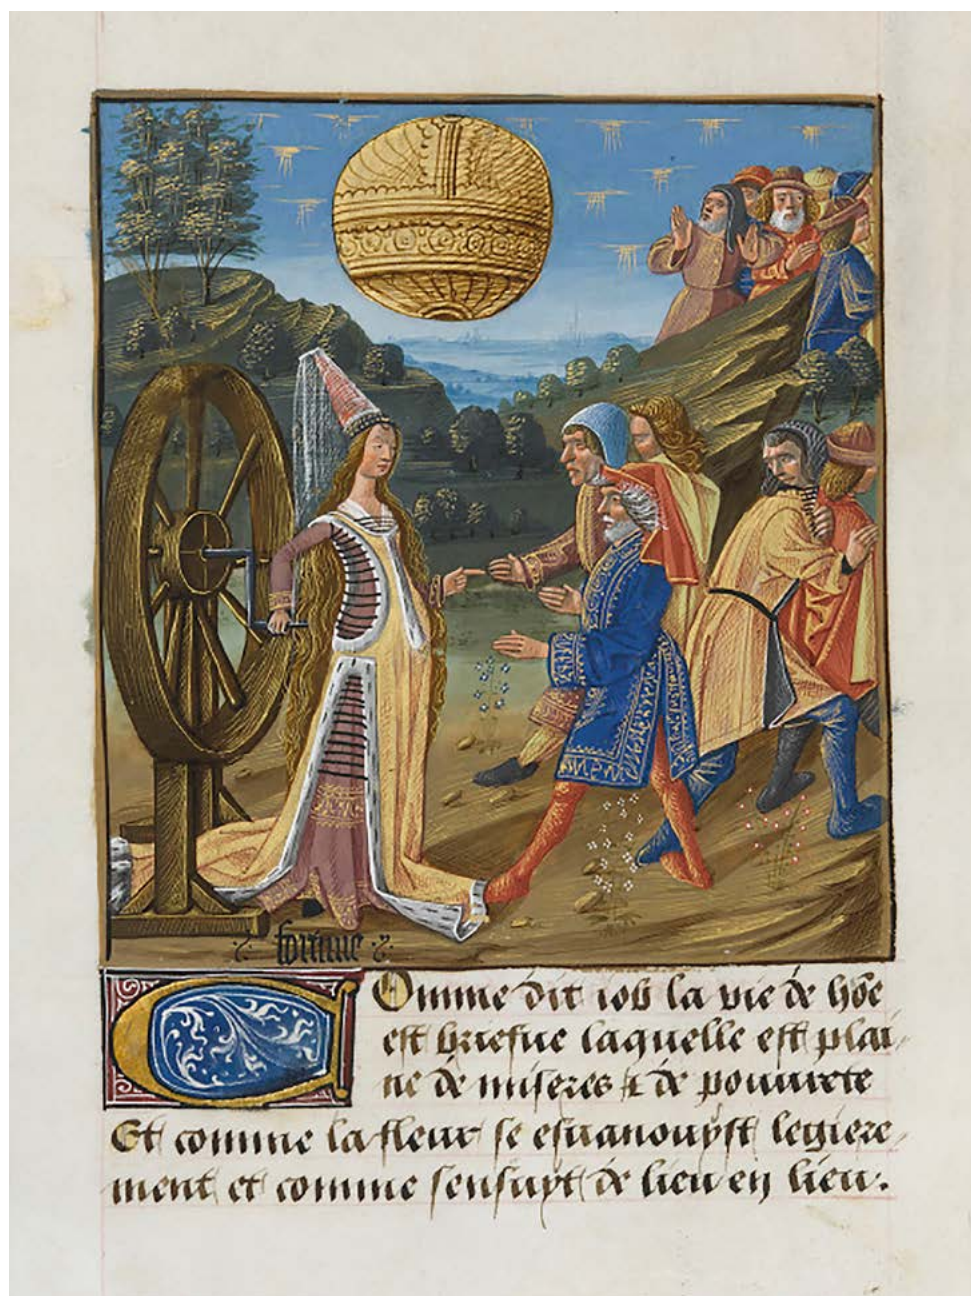 fortune
Comme dit iob la vie de hõe
est briefue laquelle est plai,
ne de miseres & de pouurete
Et comme la fleur se esuanouyst legiere,
ment et comme sensuyt de lieu en lieu.